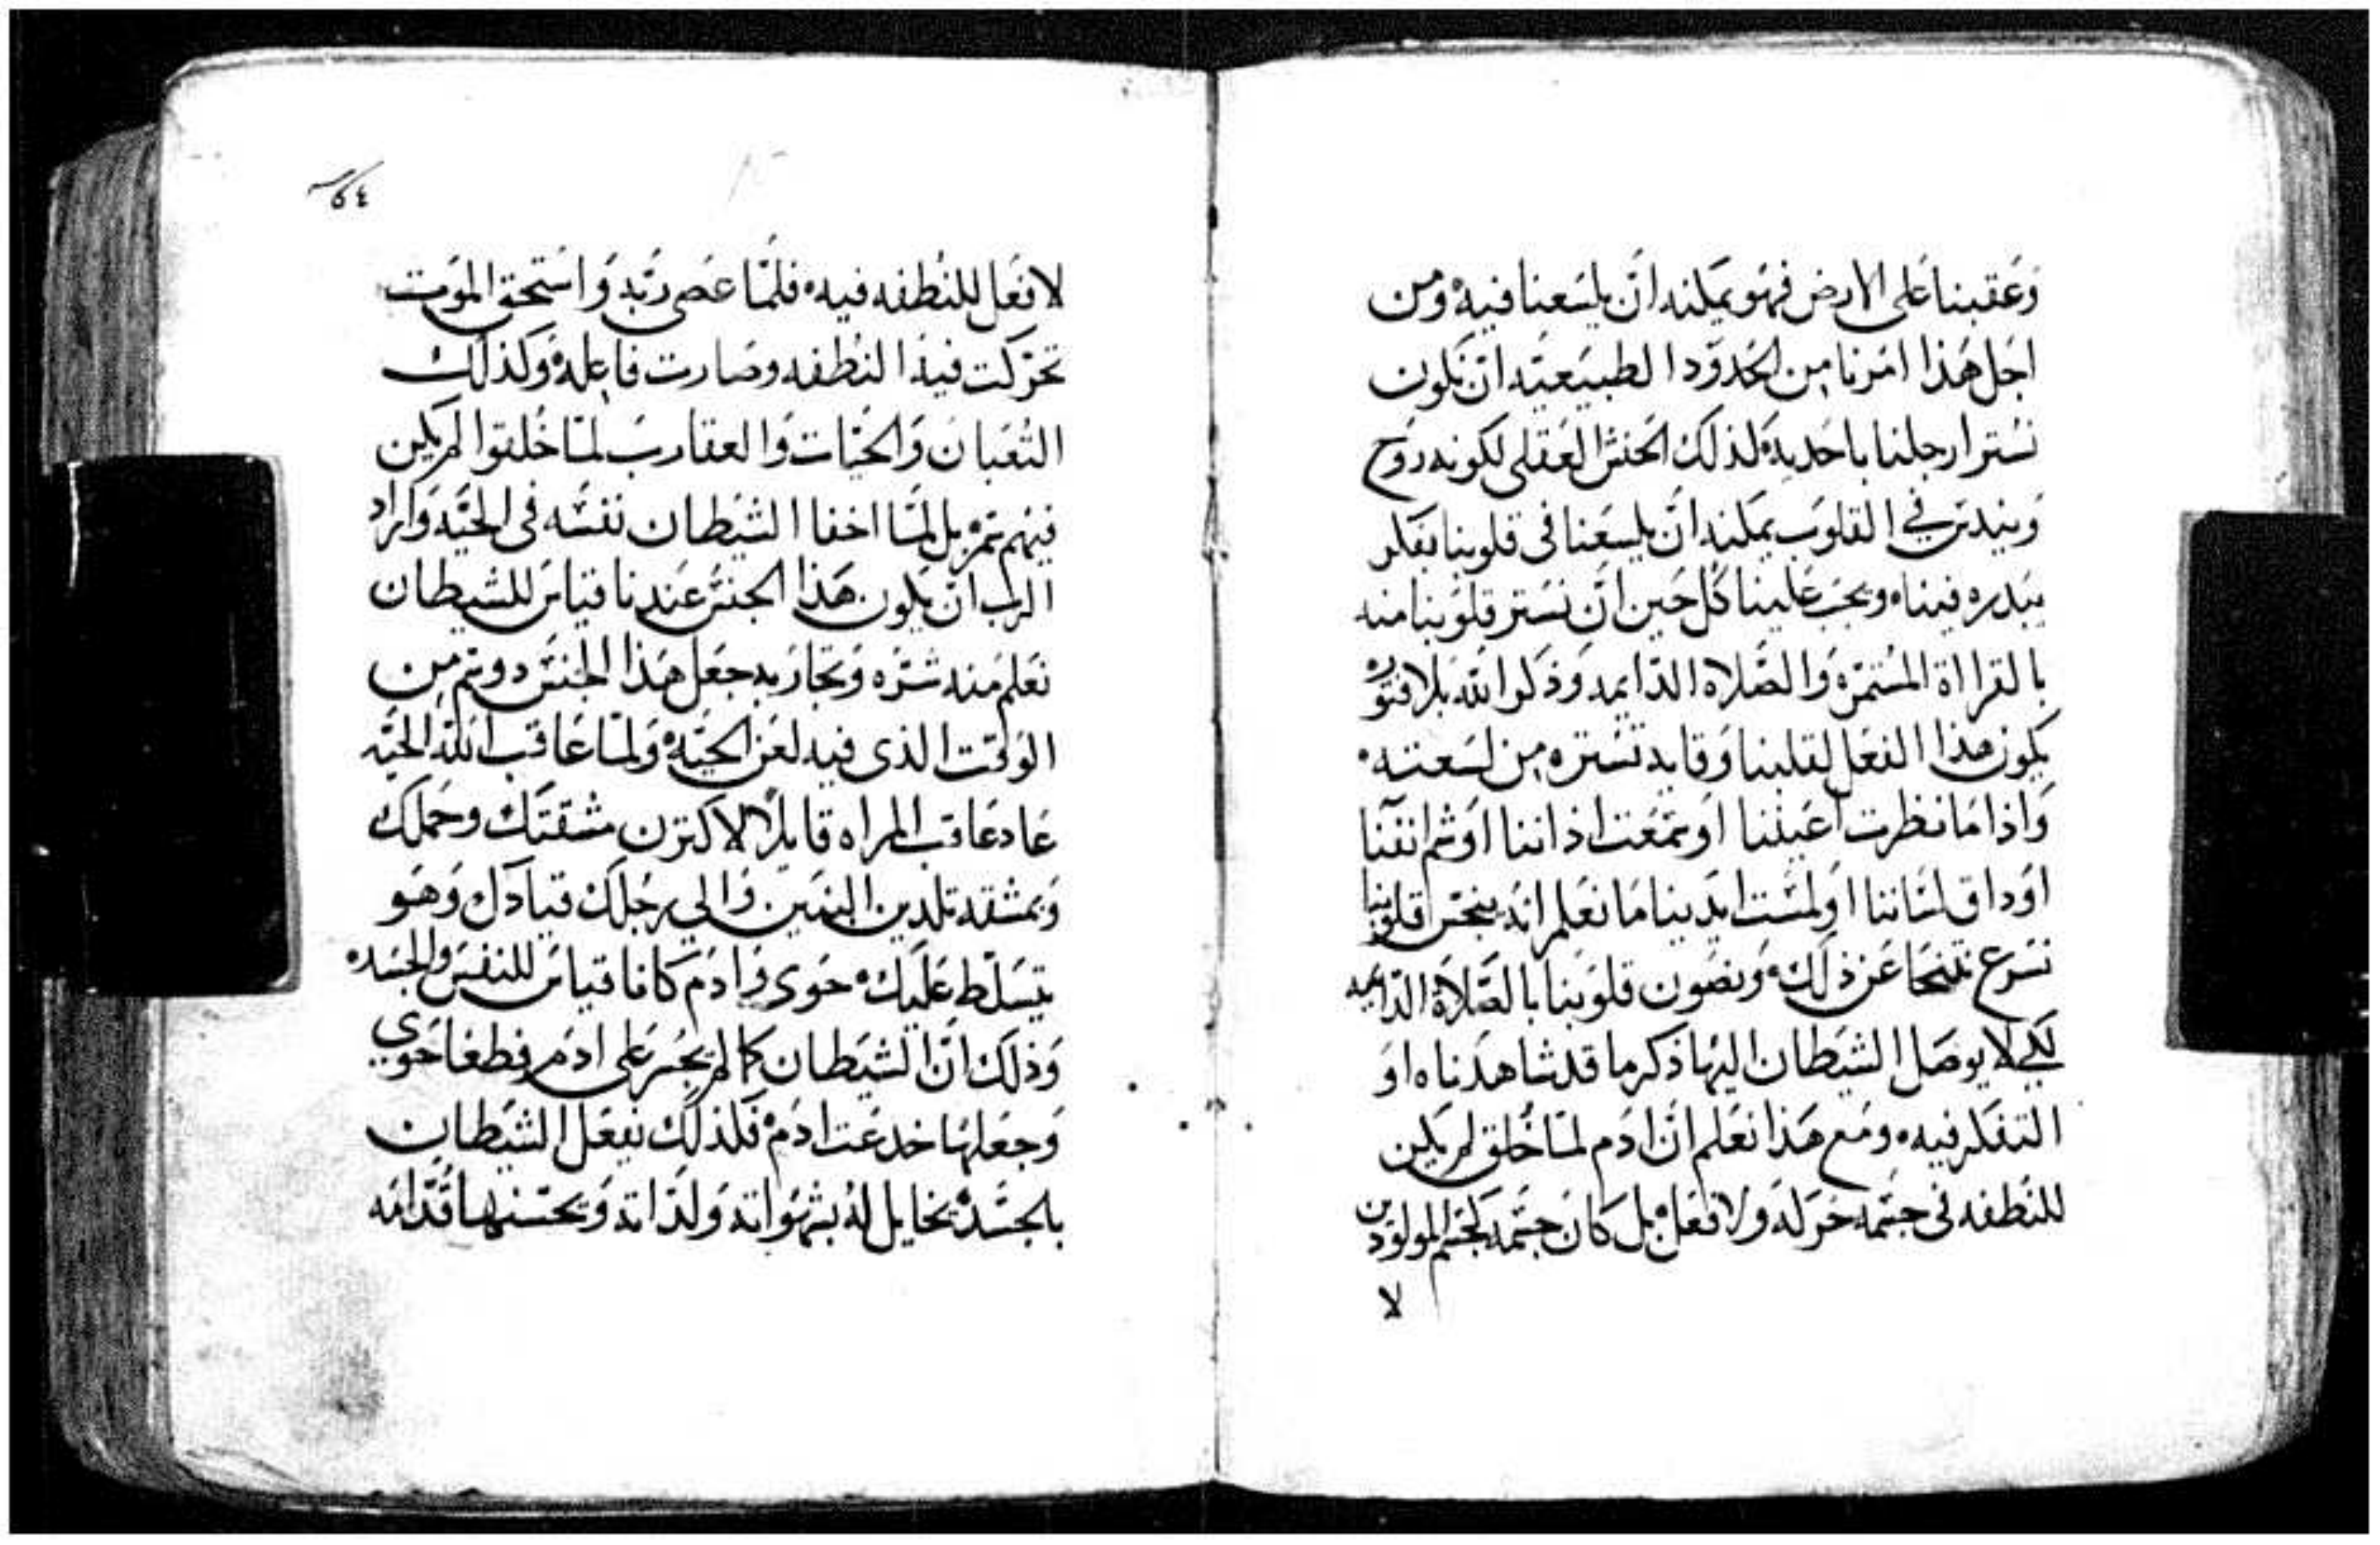 وعقبنا على الارض فهو يمكنه ان يلسعنا فيه ومن
اجل هذا امرنا من الحدود الطبيعيه ان نكون
نستر ارجلنا باحديه لذلك الحنش العقلي لكونه روح
ويندس في القلوب يمكنه ان يلسعنا في قلوبنا بفكر
يبدره فينا ويجب علينا كل حين ان نستر قلوبنا منه
بالقرااة المستمره والصلاه الدايمه وذكر الله بلا فتور
يكون هذا الفعل لقلبنا وقايه تستره من لسعته
واذا ما نظرت اعيننا او سمعت اذاننا او شم انفنا
او داق لساننا او لمست ايدينا ما نعلم انه ينجس قلوبنا
نسرع نتنحا عن ذلك ونصون قلوبنا بالصلاة الدايمه
لكي لا يوصل الشيطان اليها ذكر ما قد شاهدناه او
التفكر فيه ومع هذا نعلم ان ادم لما خلق لم يكن
للنطفه في جسمه حركه ولا فعل بل كان جسمه كجسم المولودين
لا
لا فعل للنطفه فيه فلما عصى ربه واستحق الموت
تحركت فيه النطفه وصارت فاعله وكذلك
الثعبان والحيات والعقارب لما خلقوا لم يكن
فيهم سم بل لما اخفا الشيطان نفسه في الحيه واراد
الرب ان يكون هذا الجنس عندنا قياس للشيطان
نعلم منه شره ونحاربه جعل هذا الجنس دو سم من
الوقت الذي فيه لعن الحيه ولما عاقب الله الحيه
عاد عاقب المراه قايلا لاكثرن مشقتك وحملك
وبمشقه تلدين البنين والى رجلك قيادك وهو
يتسلط عليك حوى وادم كانا قياس للنفس والجسد
وذلك ان الشيطان كما لم يجسر على ادم فطغا حوى
وجعلها خدعت ادم فلذلك يفعل الشيطان
بالجسد يخايل له بشهواته ولداته ويحسنها قدامه